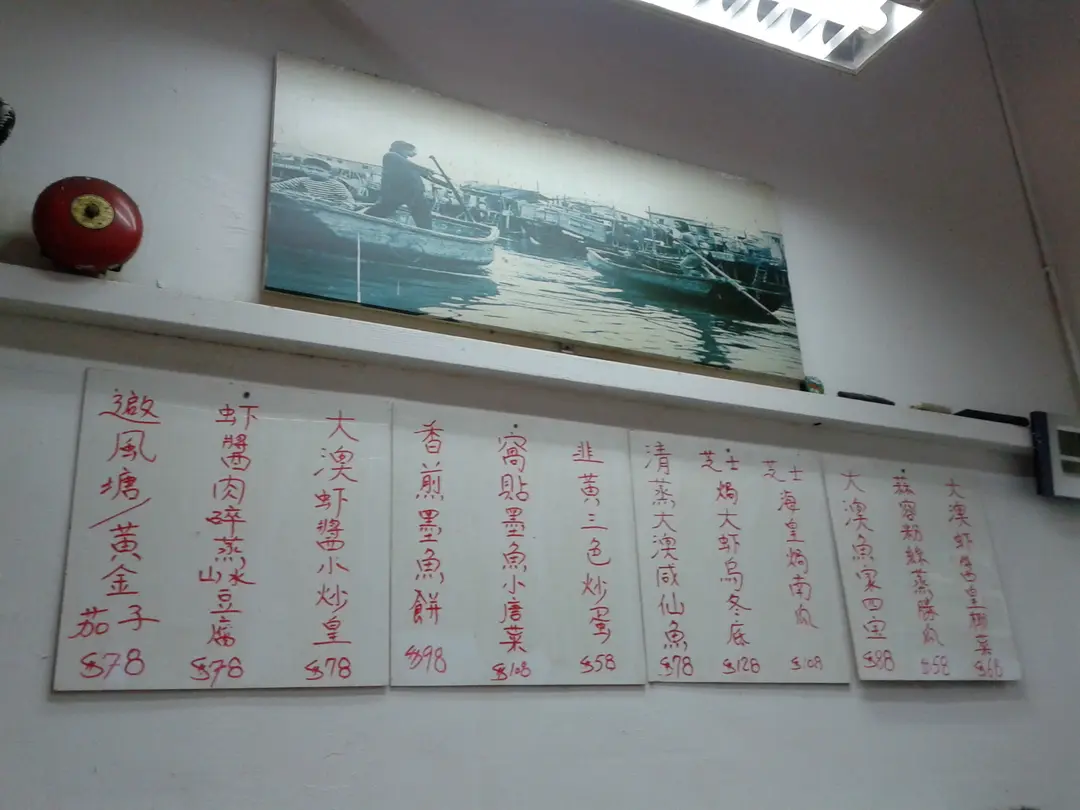 大澳虾醬皇椰菜
$68
蒜容粉絲蒸勝瓜
$58
大澳魚家四宝
$88
芝士海皇焗南瓜
$108
芝士焗大虾烏冬底
$128
清蒸大澳咸仙魚
$78
韭黃三色炒蛋
$58
窩貼墨魚小唐菜
$108
香煎墨魚餅
$98
大澳虾醬小炒皇
$78
虾醬肉碎蒸山水豆腐
$78
避風塘/黃金茄子
$78